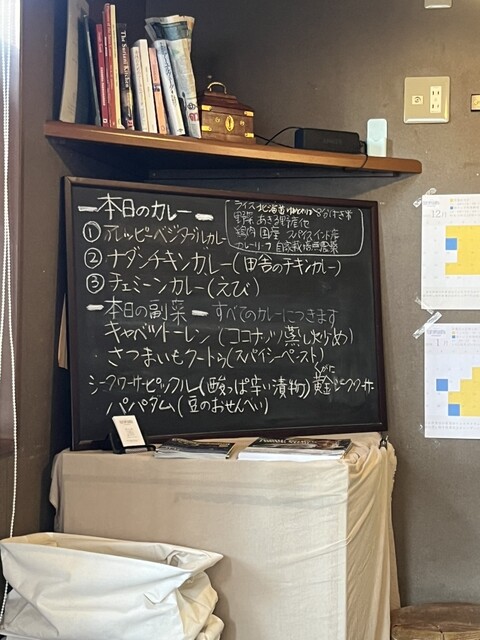 The Savory Kitchen
ー本日のカレーー
① アレッピーベジタブルカレー
② ナダンチキンカレー(田舎のチキンカレー)
③ チェミーンカレー(えび)
ライス 北海道ゆめぴりか 8分づき米
野菜 あきる野産 他
鶏肉 国産 スパイス インド店
カレーリーフ 自家栽培無農薬
ー本日の副菜ー すべてのカレーにつきます
キャベツトーレン (ココナッツ蒸し炒め)
さつまいもクートゥ(スパイシーペースト)
シークワーサーピックル(酸っぱ辛い漬物) 黄金シークワーサー
パパダム(豆のおせんべい)
12月
1月